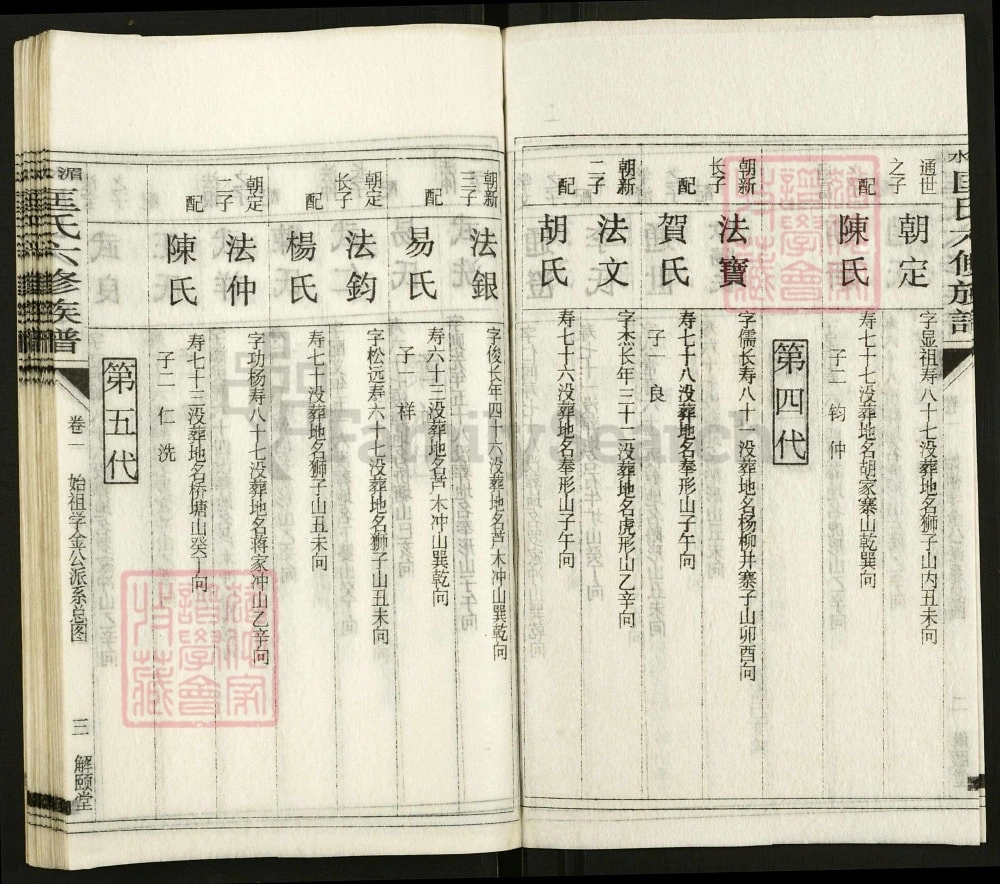 通世之子
朝定
字显祖寿八十七没葬地名狮子山内丑未向
配
陳氏
寿七十七没葬地名胡家寨山乾巽向
子二 钧 仲
第四代
朝新长子
法寶
字儒长寿八十一没葬地名杨柳井寨子山卯酉向
配
賀氏
寿七十八没葬地名奉形山子午向
子一 良
朝新二子
法文
字杰长年三十二没葬地名虎形山乙辛向
配
胡氏
寿七十六没葬地名奉形山子午向
朝新三子
法銀
字俊长年四十六没葬地名芦木冲山巽乾向
配
易氏
寿六十三没葬地名芦木冲山巽乾向
子一 祥
朝定长子
法鈞
字松远寿六十七没葬地名狮子山丑未向
配
楊氏
寿七十没葬地名狮子山丑未向
朝定二子
法仲
字功杨寿八十七没葬地名蒋家冲山乙辛向
配
陳氏
寿七十三没葬地名桥塘山癸丁向
子二 仁 洗
第五代
匡氏六修族譜
卷二 始祖学金公派系总图 三 解頤堂
FamilySearch